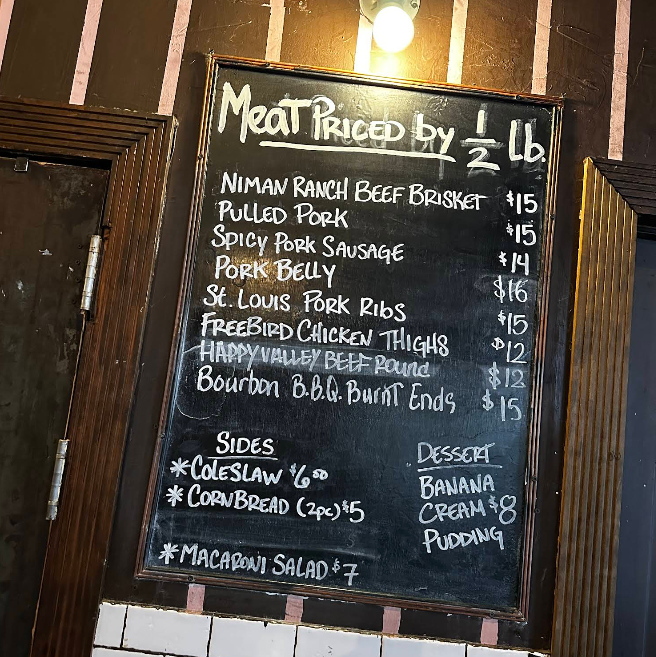 Meat Priced by 1/2 Lb.
Niman Ranch Beef Brisket $15
Pulled Pork $15
Spicy Pork Sausage $14
Pork Belly $16
St. Louis Pork Ribs $15
FreeBird Chicken Thighs $12
Happy Valley Beef Round $12
Bourbon B.B.Q. Burnt Ends $15
Sides
*Coleslaw $6.00
*CornBread (2pc) $5
*Macaroni Salad $7
Dessert
Banana
Cream $8
Pudding